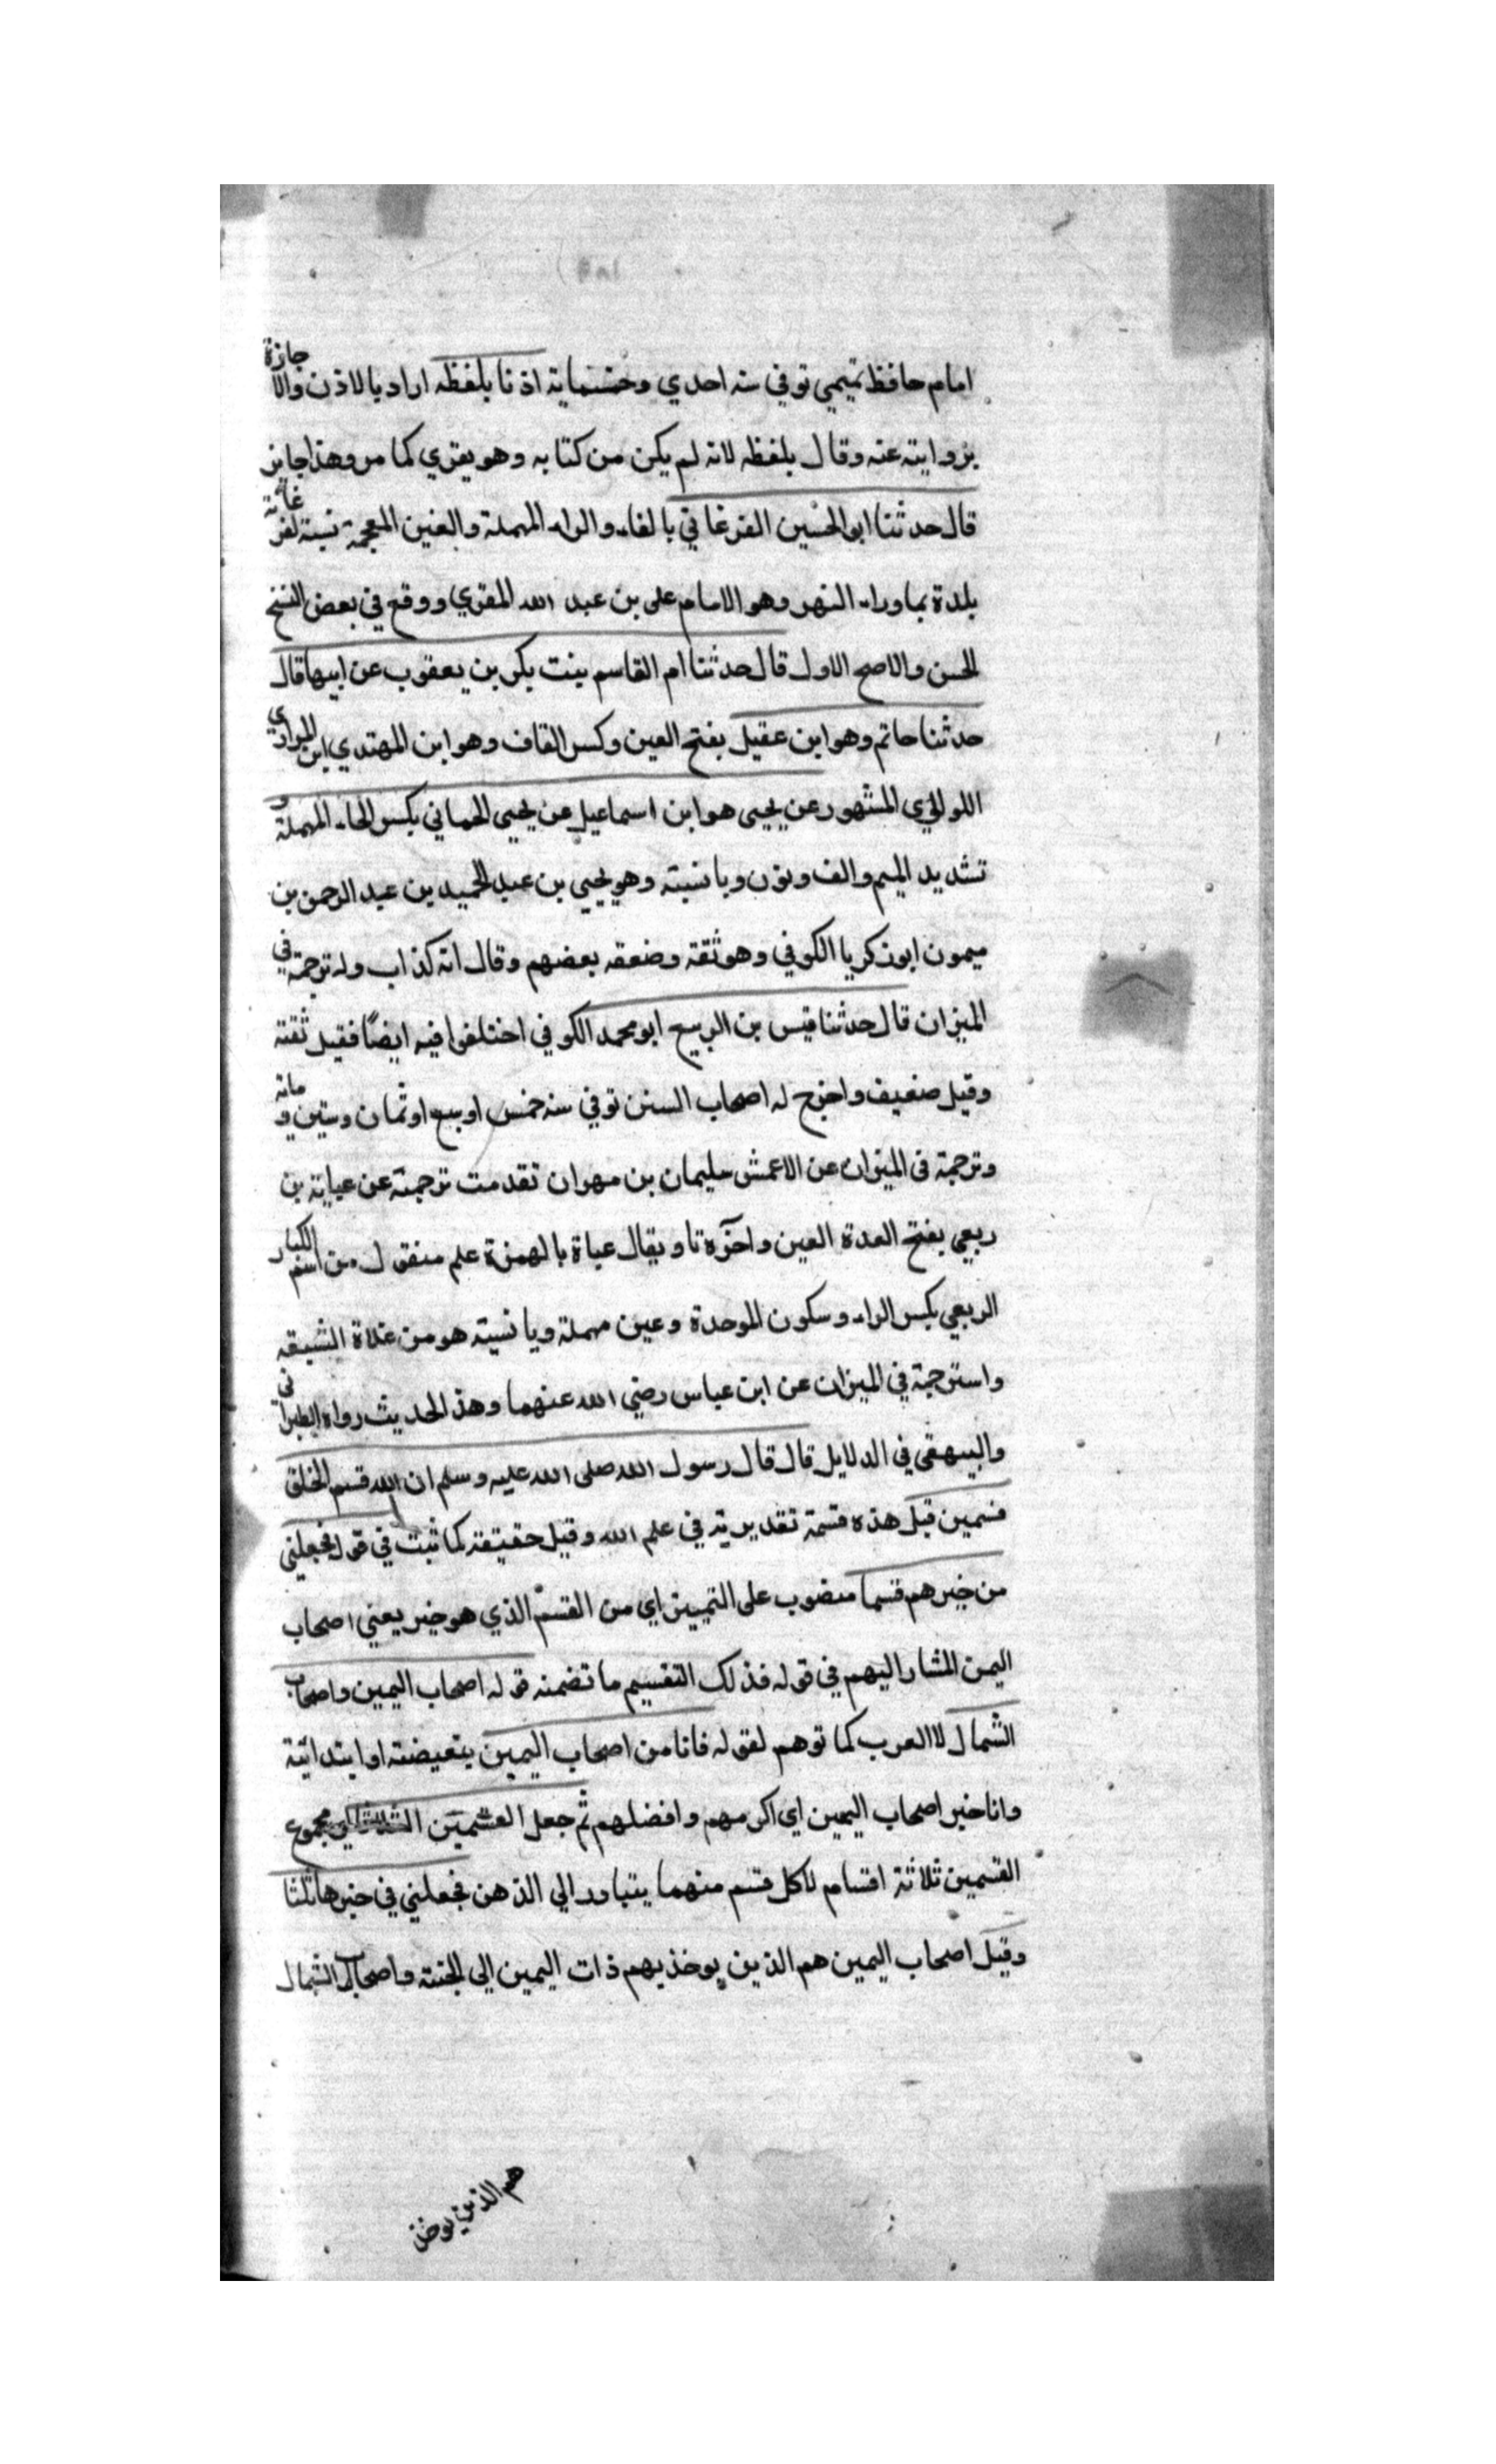 امام حافظ تميمي توفي سنه احدي وخمسماية اذنا بلفظه اراد بالاذن والاجازة
بروايته عنه وقال بلفظه لانه لم يكن من كتابه وهو يقري كما مر وهذا جايز
قال حدثنا ابو الحسين الفرغاني بالفاء والراء المهملة والغين المعجمة نسبة لفرغانة
بلدة بما وراء النهر وهو الامام على بن عبد الله المقري ووقع في بعض النسخ
الحسن والاصح الاول قال حدثنا ام القاسم بنت بكر بن يعقوب عن ابيها قال
حدثنا حاتم وهو ابن عقيل بفتح العين وكسر القاف وهو ابن المهتدي ابن المرادي
اللولوي المشهور عن يحيى هو ابن اسماعيل عن يحيى الحماني بكسر الحاء المهملة و
تشديد الميم والف ونون ويا نسبته وهو يحيي بن عبد الحميد بن عبد الرحمن بن
ميمون ابو زكريا الكوفي وهو ثقة وضعفه بعضهم وقال انه كذاب وله ترجمة في
الميزان قال حدثنا قيس بن الربيع ابو محمد الكوفي اختلفوا فيه ايضًا فقيل ثقته
وقيل ضعيف واخرج له اصحاب السنن توفي سنه خمس او سبع او ثمان وستين و ماته
وترجمة في الميزان عن الاعمش سليمان بن مهران تقدمت ترجمته عن عباية بن
ربعي بفتح العدة العين واخره تا ويقال عباة بالهمزة علم منقول من اسم الكبار
الربعي بكسر الراء وسكون الموحدة وعين مهملة ويا نسبته هو من غلاة الشيعة
واسترجمة في الميزان عن ابن عباس رضي الله عنهما وهذ الحديث رواه الطبراني
والبيهقى في الدلايل قال قال رسول الله صلى الله عليه وسلم ان الله قسم الخلق
قسمين قبل هذه قسمة تقديرية في علم الله وقيل حقيقة كما ثبت في قوله فجعلني
من خيرهم قسما منصوب على التمييز اي من القسم الذي هو خير يعني اصحاب
اليمن المشار اليهم في قوله فذلك التقسيم ما تضمنه قوله اصحاب اليمين واصحاب
الشمال لا العرب كما توهم لقوله فانا من اصحاب اليمين بتعيضته او ابتدائية
وانا خير اصحاب اليمين اي اكرمهم وافضلهم ثم جعل القسمين مجموع
القسمين ثلاثة اقسام لا كل قسم منهما يتبادر الي الذهن فجعلني في خيرها ثلثا
وقيل اصحاب اليمين هم الذين يوخذ بهم ذات اليمين الي الجنته واصحاب الشمال
هم الذين يوخذ